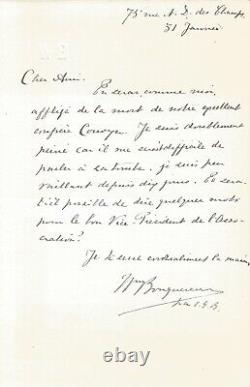 75 rue N. D. des Champs
31 Janvier
Cher Ami.
Tu seras, comme moi
affligé de la mort de notre excellent
confrère. Je suis doublement
peiné car il me serait difficile de
parler à sa tombe. je suis peu
vaillant depuis dix jours. Te serait
il possible de dire quelques mots
pour le bon Vice Président de l'Asso-
ciation?
Je te serre cordialement la main
Wm Bouguereau
© ebay